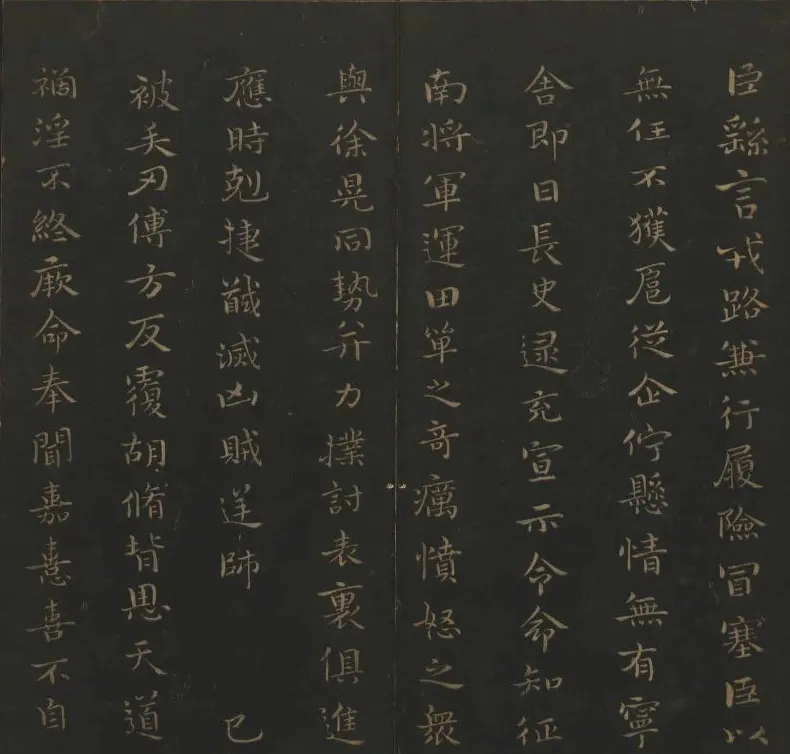 臣繇言戎路兼行履險冒寒臣以
無任不獲扈從企佇懸情無有寧
舍即日長史逮充宣示令命知征
南將軍運田單之奇厲憤怒之衆
與徐晃同勢并力撲討表裏俱進
應時剋捷馘滅凶賊逆帥 已
被矢刃傅方反覆胡脩背恩天道
禍淫不終厥命奉聞嘉憙喜不自